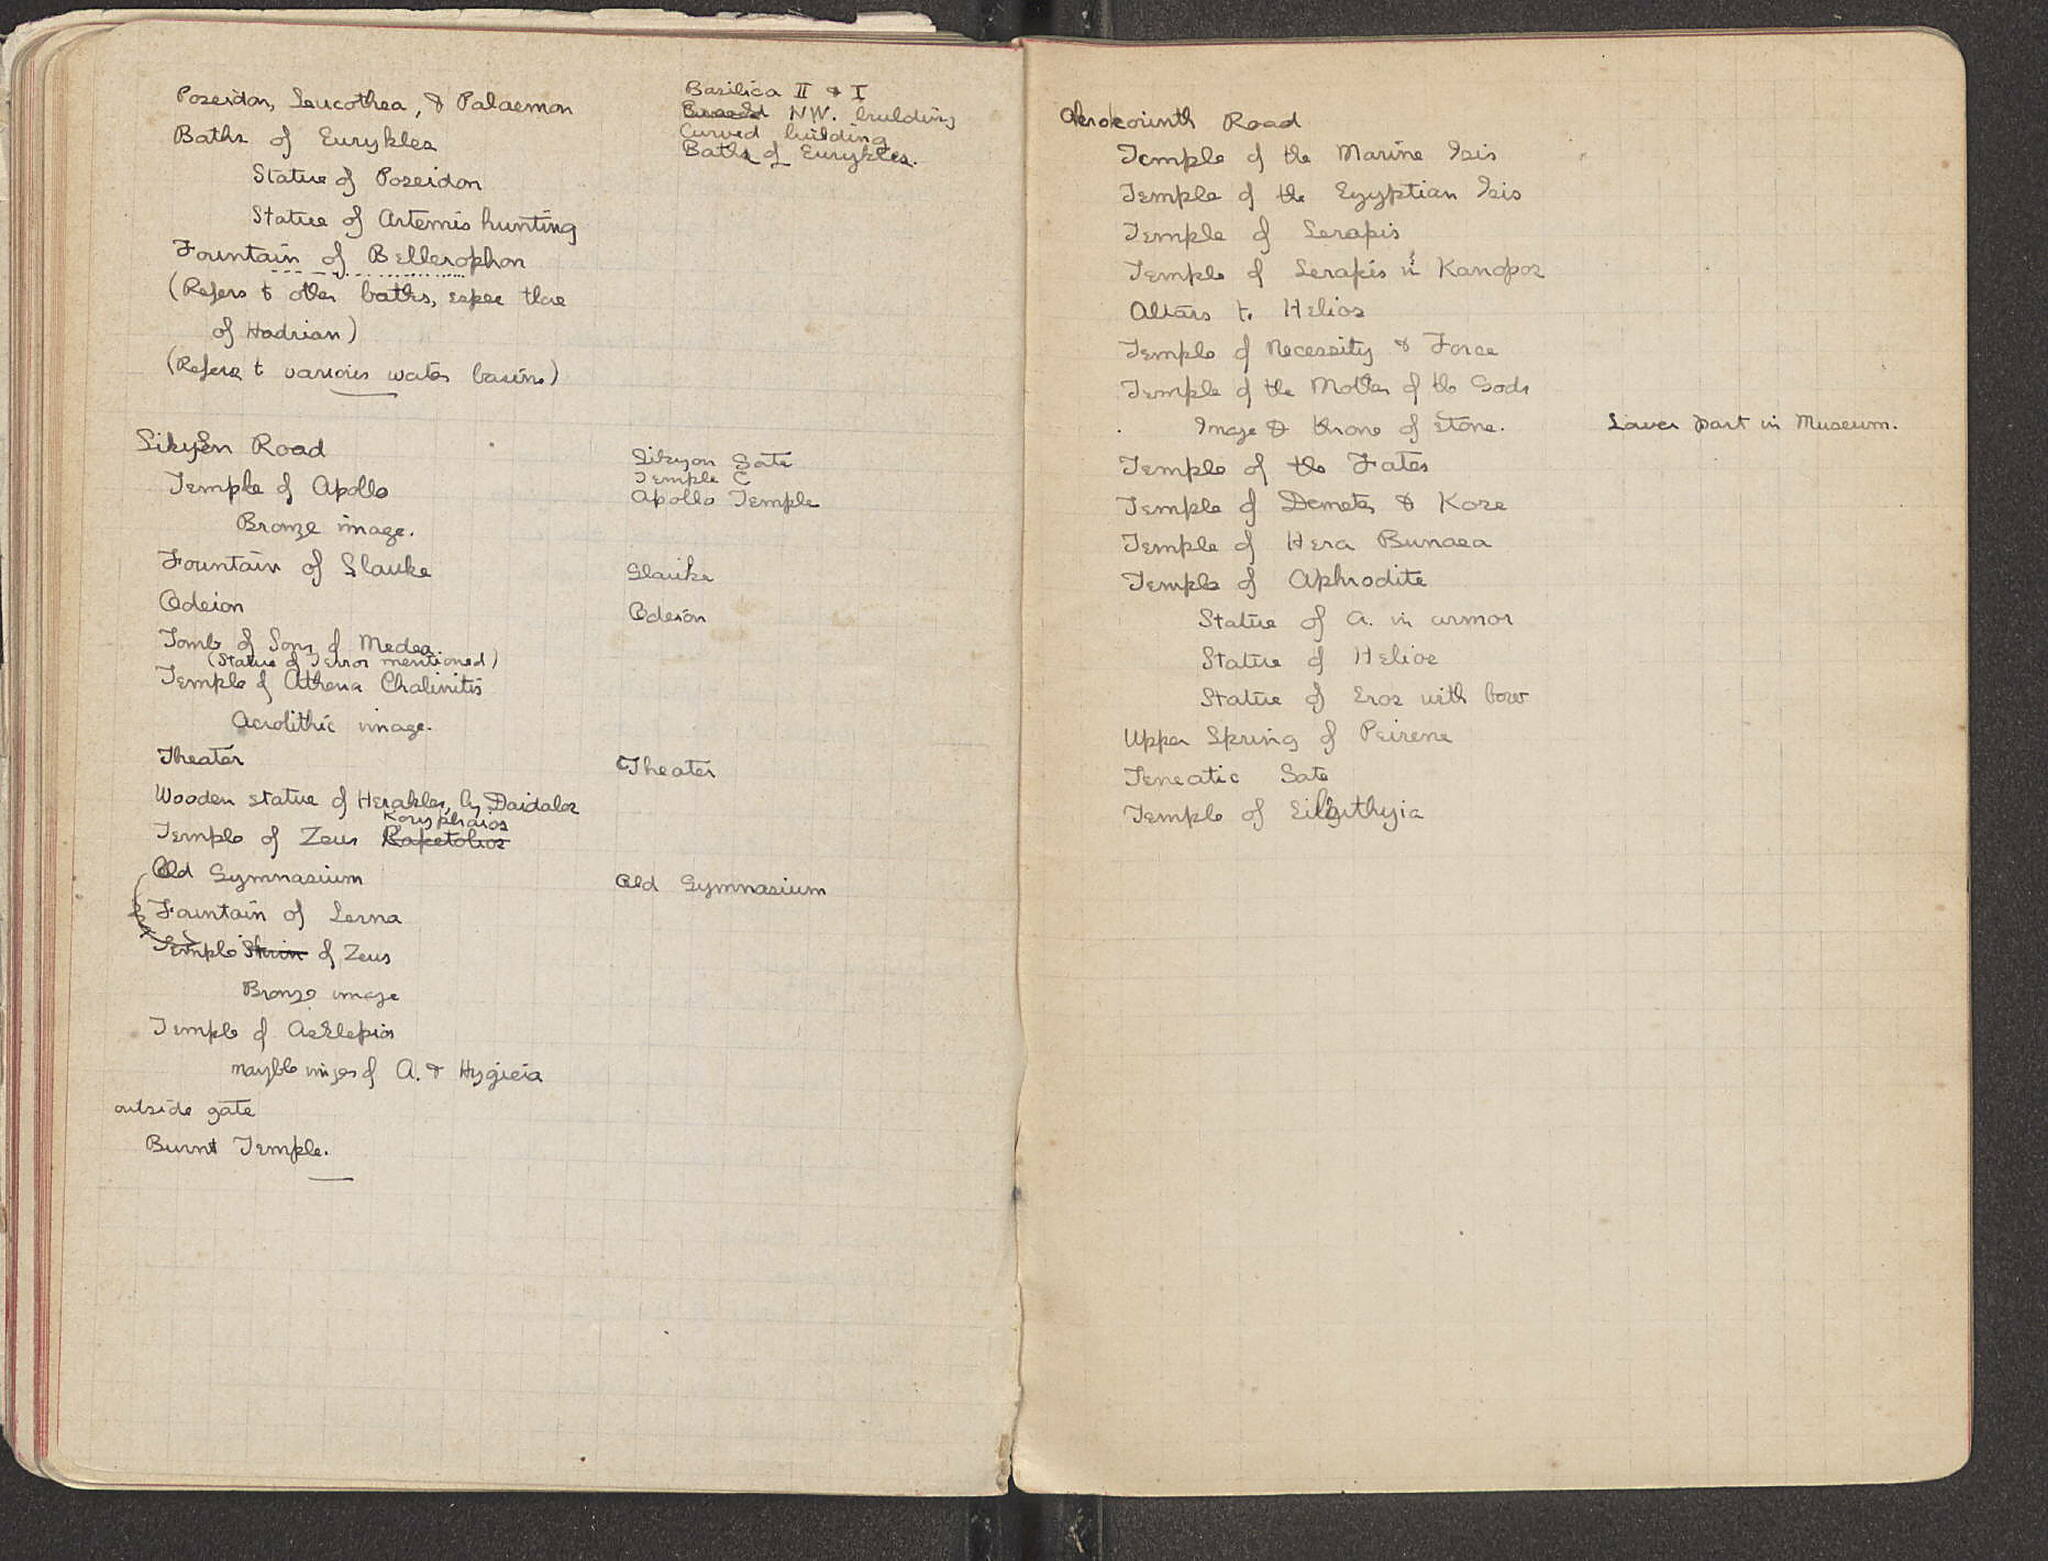 Poseidon, Leucothea, & Palaemon
Baths of Eurykles
Statue of Poseidon
Statue of Artemis hunting
Fountain of Bellerophon
(Refers to other baths, espec those
of Hadrian)
(Refers to various water basins)
Basilica II & I
NW. building
Curved building
Baths of Eurykles.
Sikyon Road
Temple of Apollo
Bronze image.
Fountain of Glauke
Odeion
Tomb of Sons of Medea.
(Statue of Terror mentioned)
Temple of Athena Chalinitis
Acrolithic image.
Theater
Wooden statue of Herakles, by Daidalos
Koryphaios
Temple of Zeus Kapetolios
Old Gymnasium
Fountain of Lerna
Temple Shrin of Zeus
Bronze image
Temple of Asklepios
marble images of A. & Hygieia
outside gate
Burnt Temple.
Sikyon Gate
Temple C
Apollo Temple
Glauke
Odeion
Theater
Old Gymnasium
Akrokorinth Road
Temple of the Marine Isis
Temple of the Egyptian Isis
Temple of Serapis
Temple of Serapis in Kanopos
Altars to Helios
Temple of Necessity & Force
Temple of the Mother of the Gods
Image & throne of stone. Lower part in Museum.
Temple of the Fates
Temple of Demeter & Kore
Temple of Hera Bunaea
Temple of Aphrodite
Statue of A. in armor
Statue of Helios
Statue of Eros with bow
Upper Spring of Peirene
Teneatic Gate
Temple of Eileithyia